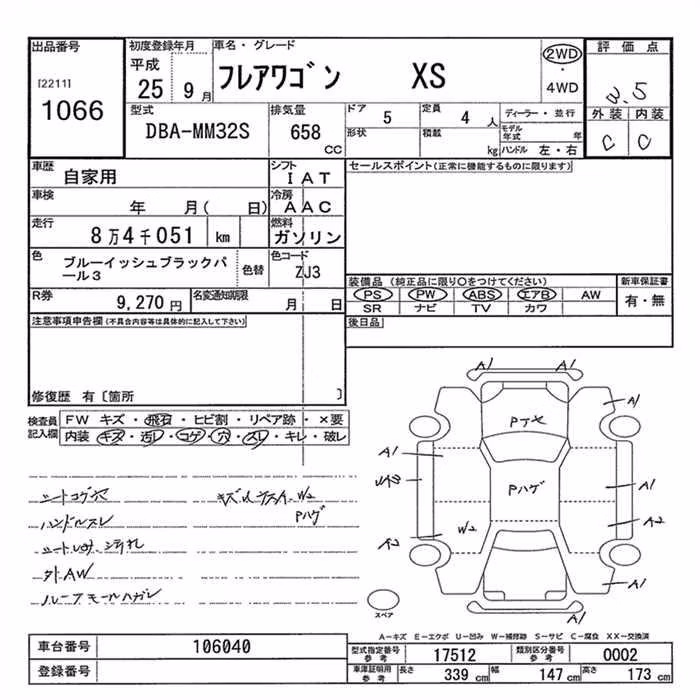 出品番号
[2211]
1066
初度登録年月
平成
25 9 月
車名・グレード
フレアワゴン XS
2WD
・
4WD
評価点
3.5
外装 内装
C C
型式
DBA-MM32S
排気量
658
CC
ドア 5
形状
定員 4 人
積載 kg
ディーラー・並行
モデル年式 年
ハンドル 左・右
車歴
自家用
シフト
I A T
車検
年 月( 日)
冷房
A A C
走行
8万4千051 km
燃料
ガソリン
色
ブルーイッシュブラックパール3
色替
色コード
ZJ3
R券
9,270 円
名変通知期限
月 日
セールスポイント(正常に機能するものに限ります)
装備品 (純正品に限り○をつけてください)
PS PW ABS エアB AW
SR ナビ TV カワ
新車保証書
有・無
後日品
注意事項申告欄(不具合内容等は具体的に記入して下さい)
修復歴 有〔箇所 〕
検査員記入欄
FW キズ・飛石・ヒビ割・リペア跡・×要
内装・キズ・汚レ・コゲ・穴・スレ・キレ・破レ
シートコゲ穴
ハンドルスレ
外AW
ルーフモールハガレ
W2
Pハゲ
A1 A1
A1
A1
Pハゲ
A1
W2
A2
A2
A1
A1
スペア
A−キズ E−エクボ U−凹み W−補修跡 S−サビ C−腐食 XX−交換済
車台番号 106040
登録番号
型式指定番号参考 17512
類別区分番号参考 0002
車庫証明用参考 長さ 339 cm 幅 147 cm 高さ 173 cm